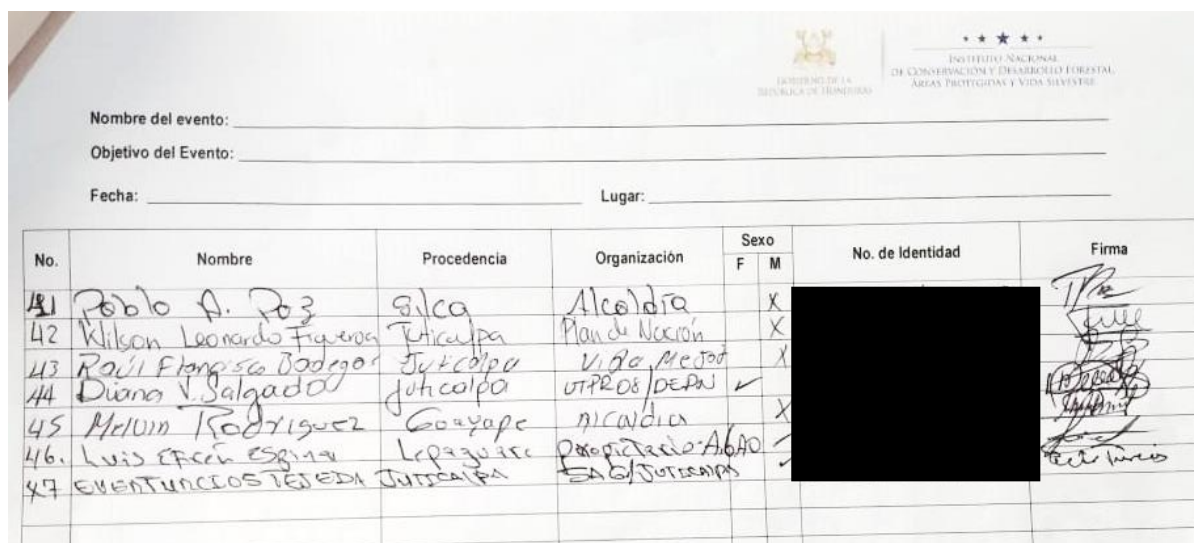 GOBIERNO DE LA
REPÚBLICA DE HONDURAS
INSTITUTO NACIONAL
DE CONSERVACIÓN Y DESARROLLO FORESTAL,
ÁREAS PROTEGIDAS Y VIDA SILVESTRE
Nombre del evento:
Objetivo del Evento:
Fecha: Lugar:
No. Nombre Procedencia Organización Sexo F M No. de Identidad Firma
41 Pablo A. Poz Silca Alcaldía X
42 Wilson Leonardo Figueroa Juticalpa Plan de Nación X
43 Raúl Francisco Juticalpa Vida Mejor X
44 Diana V. Salgado Juticalpa ✓
45 Melvin Rodriguez Guayape Alcaldia X
46. Luis Efrén Espinal Lepaguare propietario ✓
47 TEJEDA JUTICALPA SAG/JUTICALPA ✓